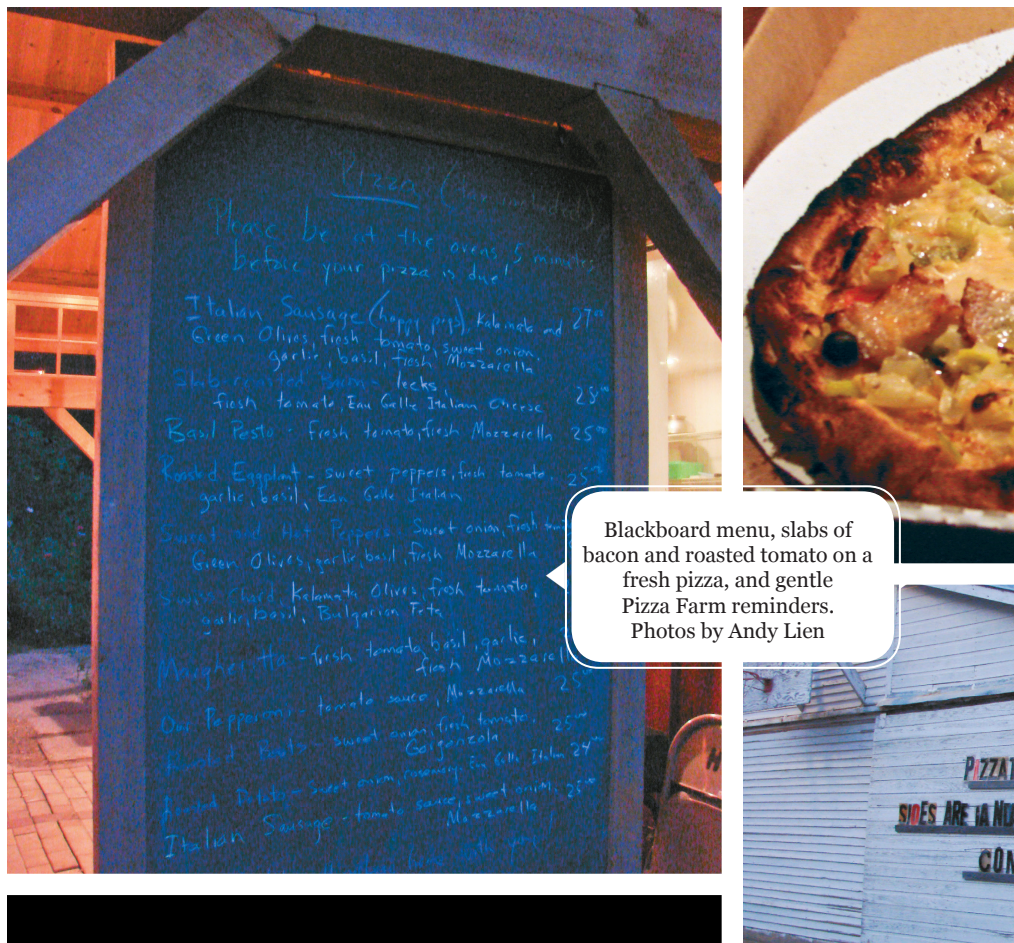 Pizza (tax included)
Please be at the ovens 5 minutes
before your pizza is due!
Italian Sausage (happy pigs), Kalamata and 27⁰⁰
Green Olives, fresh tomato, sweet onion,
garlic, basil, fresh Mozzarella
Bacon - leeks,
fresh tomato, Eau Galle Italian cheese
Basil Pesto - Fresh tomato, fresh Mozzarella 25⁰⁰
Roasted Eggplant - sweet peppers, fresh tomato,
garlic, basil, Eau Galle Italian
Sweet and Hot Peppers - Sweet onion, fresh
Green Olives, garlic, basil, fresh Mozzarella
Swiss Chard Kalamata Olives, fresh tomato,
garlic, basil, Bulgarian Feta
- fresh tomato, basil, garlic,
fresh Mozzarella
Pepperoni - tomato sauce, Mozzarella
- sweet onion, fresh tomato, 25⁰⁰
Gorgonzola
- Sweet onion, rosemary, Eau Galle Italian 24⁰⁰
Italian Sausage - tomato sauce, sweet onion,
Mozzarella
Blackboard menu, slabs of
bacon and roasted tomato on a
fresh pizza, and gentle
Pizza Farm reminders.
Photos by Andy Lien
PIZZA
SIDES ARE
CON